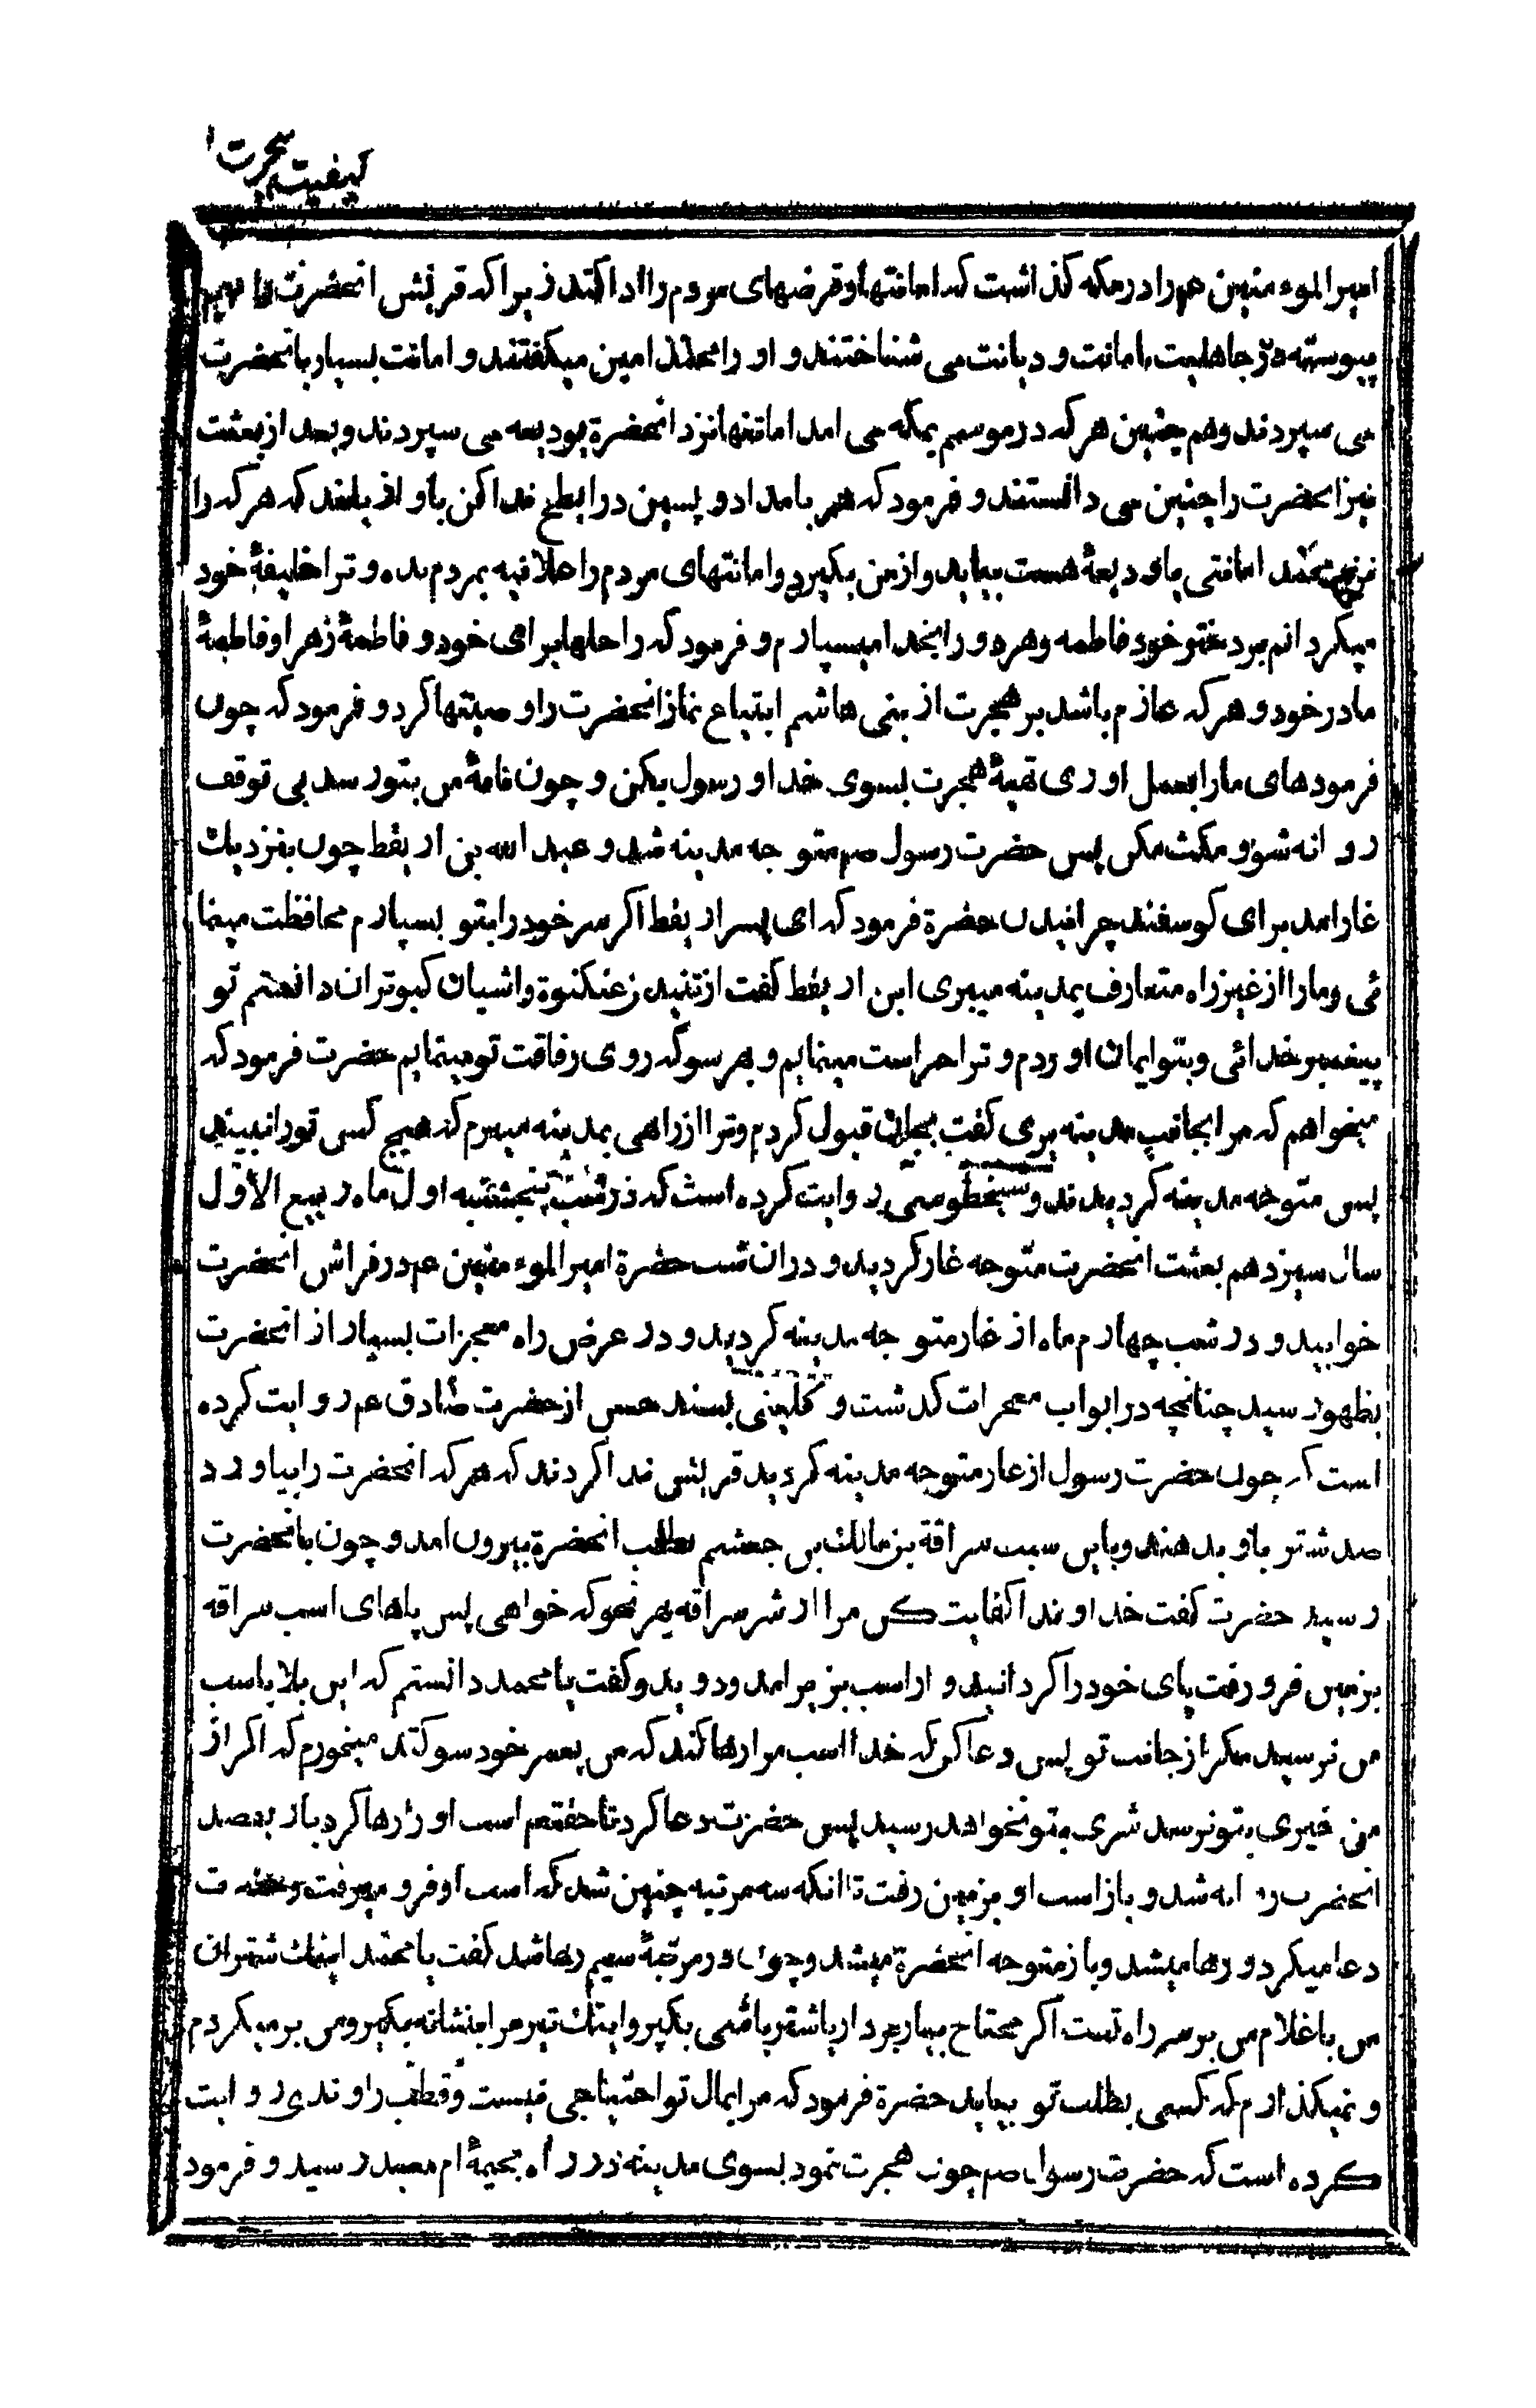 کیفیت هجرت
امیر الموء منین عم را در مکه کذاشت که امانتها و قرضهای مردم را ادا کند زیرا که قریش انحضرت را
پیوسته در جاهلیت بامانت و دیانت می شناختند و او را محمد امین میکفتند و امانت بسیار بانحضرت
می سپردند و هم چنین هر که در موسم بمکه می امد امانتها نزد انحضرة بودیعه می سپردند و بعد از بعثت
نیز انحضرت را چنین می دانستند و فرمود که هر بامداد و پسین در ابطح ندا کن باواز بلند که هر که را
نزد محمد امانتی یا ودیعهٔ هست بیاید و از من بکیرد و امانتهای مردم را علانیه بمردم بده و ترا خلیفهٔ خود
میکردانم بر دختر خود فاطمه و هر دو را بخدا میسپارم و فرمود که راحلها برای خود و فاطمهٔ زهرا و فاطمهٔ
مادر خود و هر که عازم باشد بر هجرت از بنی هاشم ابتیاع نما ز انحضرت را وصیتها کرد و فرمود که چون
فرمودهای مارا بعمل اوری تهیهٔ هجرت بسوی خدا و رسول بکن و چون نامهٔ من بتو رسد بی توقف
روانه شو و مکث مکن پس حضرت رسول صم متوجه مدینه شد و عبد الله بن اریقط چون بنزدیك
غار امد برای کوسفند چرانیدن حضرة فرمود که ای پسر اریقط اکر سر خود را بتو بسپارم محافظت مینما
ئی و مارا از غیر راه متعارف بمدینه میبری ابن اریقط کفت از تنیدن عنکبوة و اشیان کبوتران دانستم تو
پیغمبر خدائی و بتو ایمان اوردم و ترا حراست مینمایم و بهر سو که روی رفاقت تو مینمایم حضرت فرمود که
میخواهم که مرا بجانب مدینه بری کفت بجان قبول کردم و ترا از راهی بمدینه میبرم که هیچ کسی تو را نبیند
پس متوجه مدینه کردیدند و شیخ طوسی روایت کرده است که در شب پنجشنبه اول ماه ربیع الاوّل
سال سیزدهم بعثت انحضرت متوجه غار کردید و دران شب حضرة امیر الموء منین عم در فراش انحضرت
خوابید و در شب چهارم ماه از غار متوجه مدینه کردید و در عرض راه معجزات بسیار از انحضرت
بظهور رسید چنانچه در ابواب معجزات کذشت و کلینی بسند حسن از حضرت صادق عم روایت کرده
است که چون حضرت رسول از غار متوجه مدینه کردید قریش ندا کردند که هر که انحضرت را بیاورد
صد شتر باو بدهند و باین سبب سراقة بن مالك بن جعشم بطلب انحضرة بیرون امد و چون بانحضرت
رسید حضرت کفت خداوندا کفایت کن مرا از شر سراقه بهر نحو که خواهی پس پاهای اسب سراقه
بزمین فرو رفت پای خود را کردانید و از اسب بزیر امد و دوید و کفت یا محمد دانستم که این بلا باسب
من نرسید مکر از جانب تو پس دعا کن که خدا اسب مرا رها کند که من بعمر خود سوکند میخورم که اکر از
من خیری بتو نرسد شری بتو نخواهد رسید پس حضرت دعا کرد تا حقتعم اسب او را رها کرد باز بقصد
انحضرت روانه شد و باز اسب او بزمین رفت تا انکه سه مرتبه چنین شد که اسب او فرو میرفت و حضرت
دعا میکرد و رها میشد و باز متوجه انحضرة میشد و چون در مرتبهٔ سیم رها شد کفت یا محمد اینك شتران
من با غلام من بر سر راه تست اکر محتاج بباربردار یا شتر باشی بکیر و اینك تیر مرا بنشانه بکیر و من بر میکردم
و نمیکذارم که کسی بطلب تو بیاید حضرة فرمود که مرا بمال تو احتیاجی نیست و قطب راوندی روایت
کرده است که حضرت رسول صم چون هجرت نمود بسوی مدینه در راه بخیمهٔ ام معبد رسید و فرمود